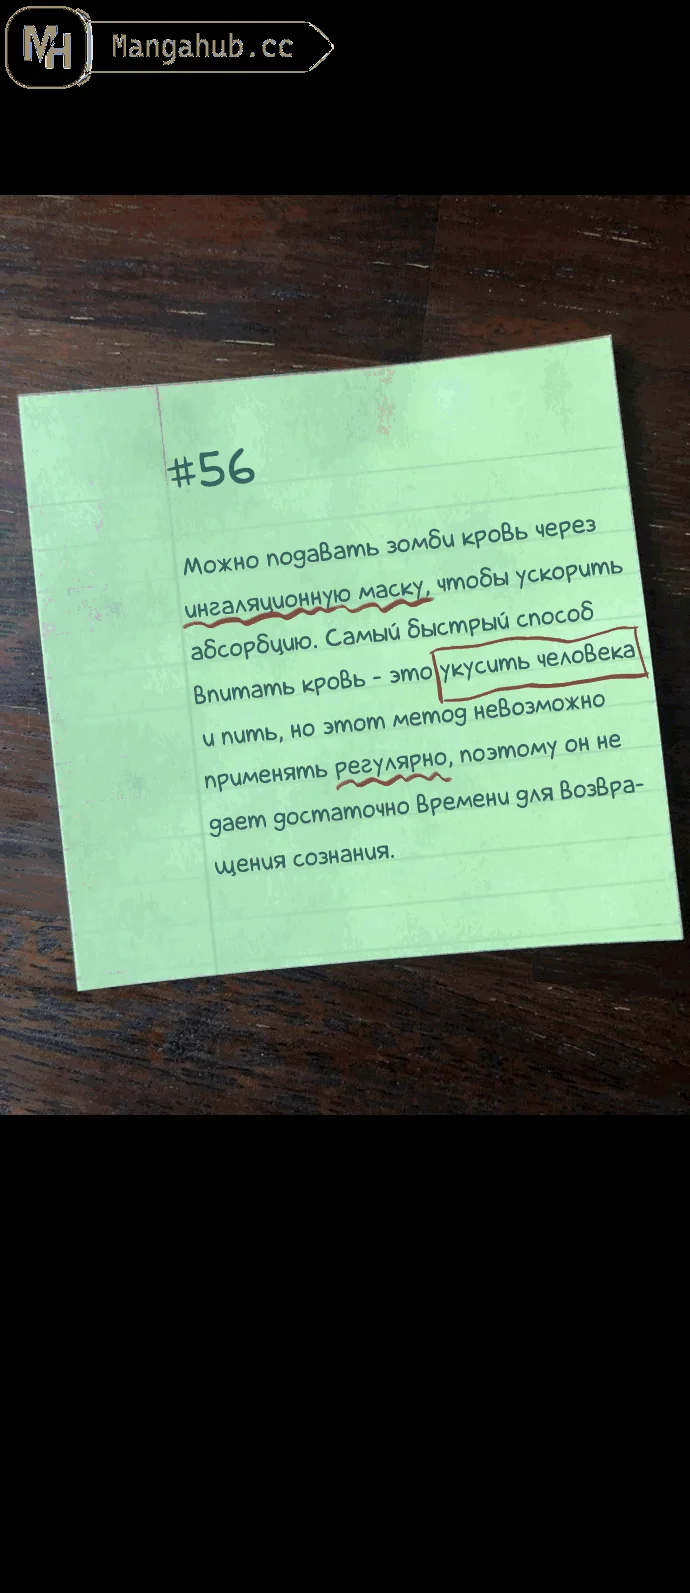 MH Mangahub.cc
#56
Можно подавать зомби кровь через
ингаляционную маску, чтобы ускорить
абсорбцию. Самый быстрый способ
впитать кровь - это укусить человека
и пить, но этот метод невозможно
применять регулярно, поэтому он не
дает достаточно времени для возвра-
щения сознания.